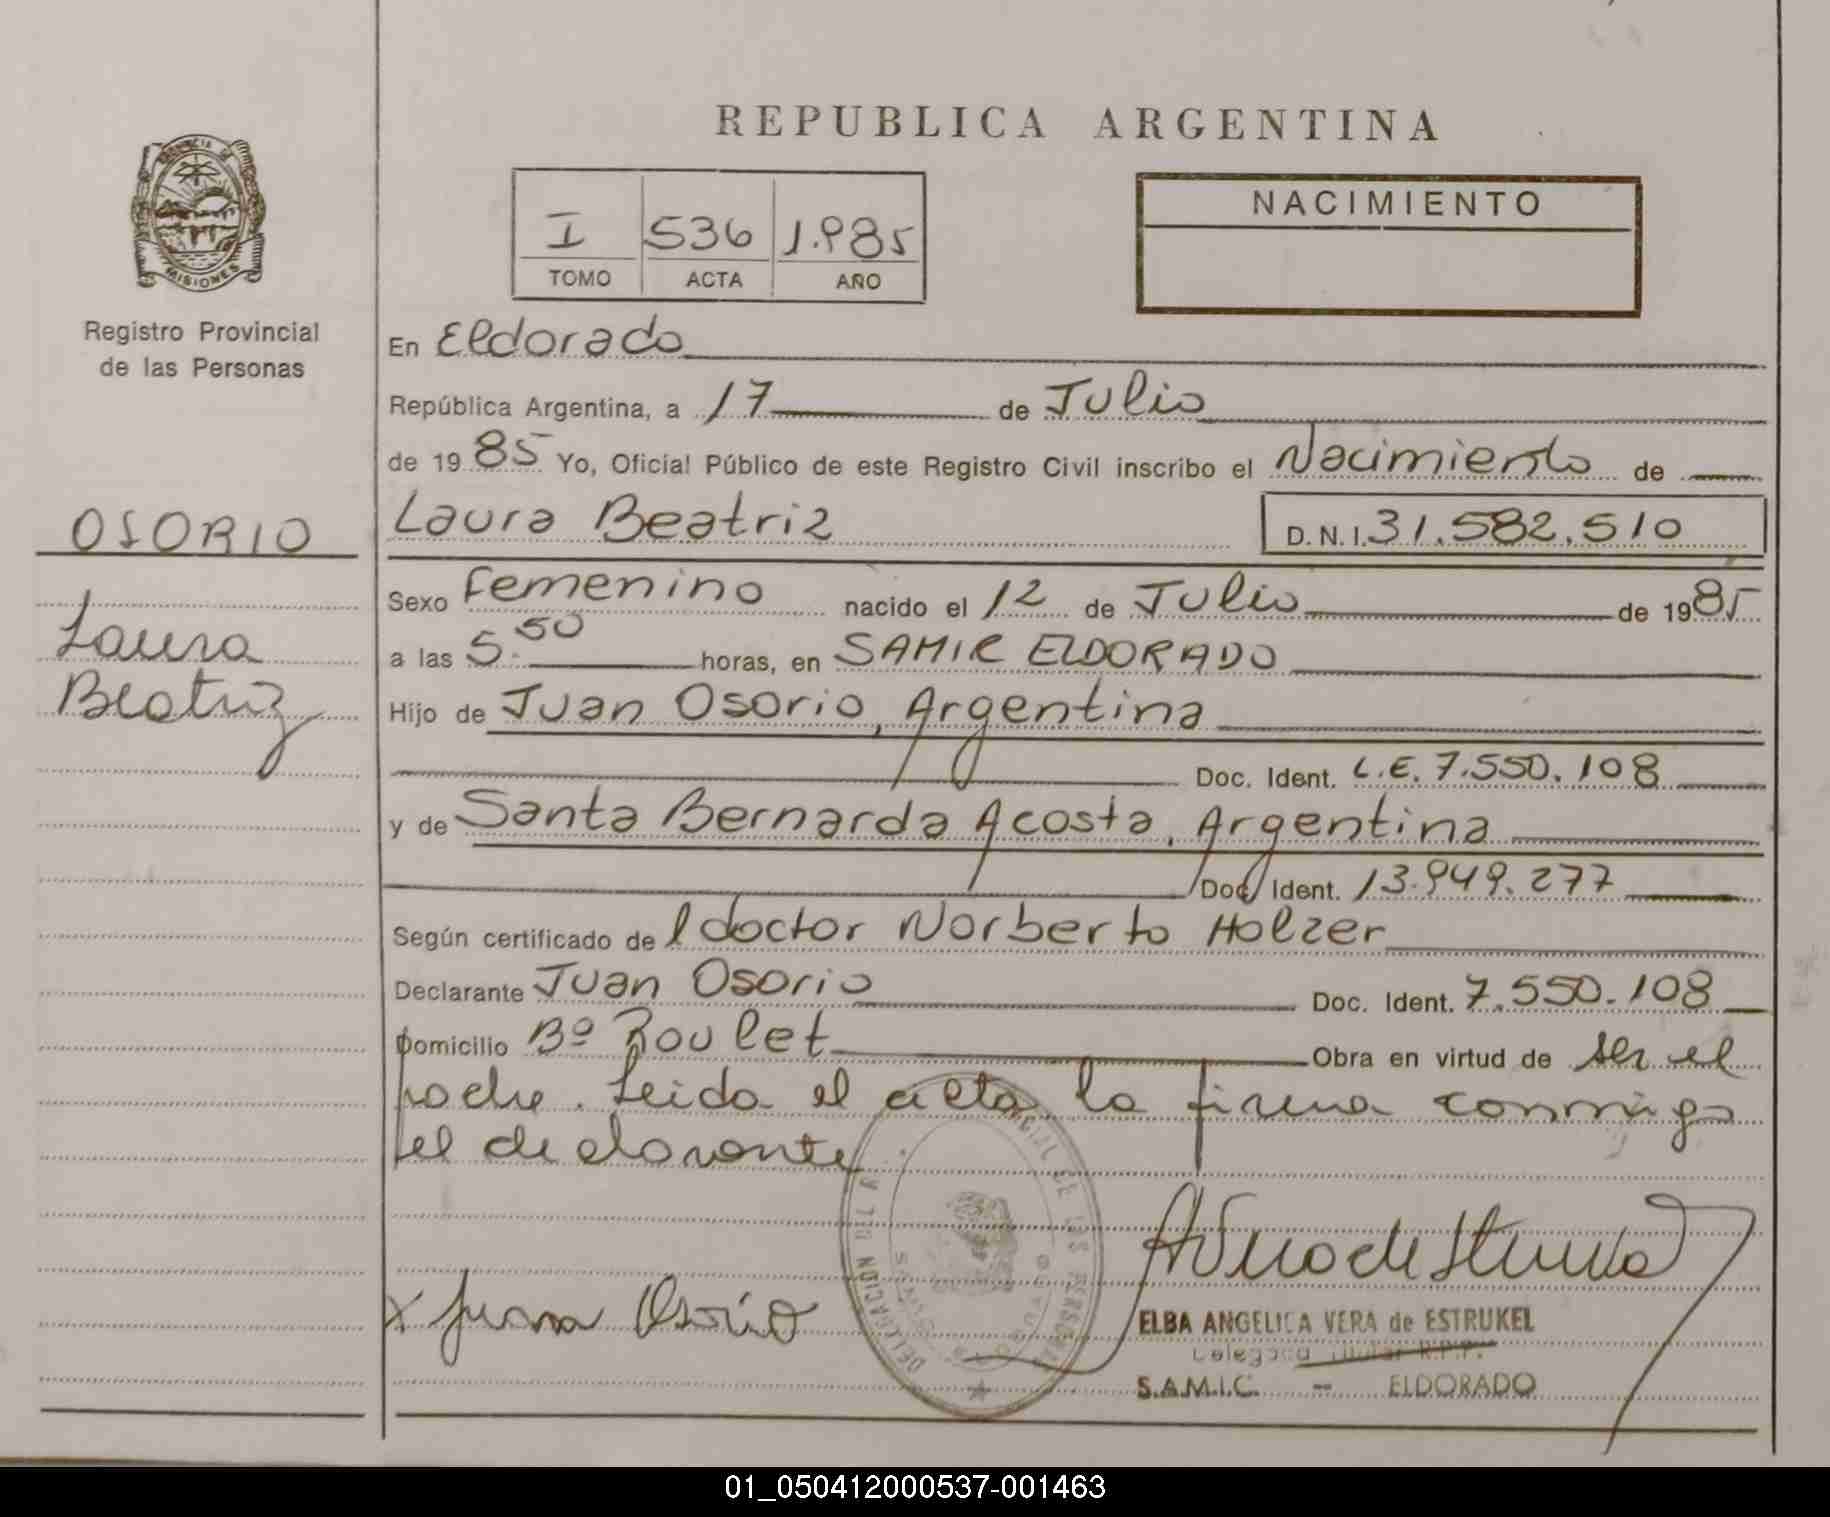 REPUBLICA ARGENTINA
PROVINCIA DE
MISIONES
Registro Provincial
de las Personas
I 536 1.985
TOMO ACTA AÑO
NACIMIENTO
En Eldorado
República Argentina, a 17 de Julio
de 19 85 Yo, Oficial Público de este Registro Civil inscribo el Nacimiento de
OSORIO
Laura Beatriz D.N.I. 31.582.510
Laura
Beatriz
Sexo Femenino nacido el 12 de Julio de 19 85
a las 5.50 horas, en SAMIC ELDORADO
Hijo de Juan Osorio, Argentina
Doc. Ident. L.E. 7.550.108
y de Santa Bernarda Acosta, Argentina
Doc. Ident. 13.949.277
Según certificado de l doctor Norberto Holzer
Declarante Juan Osorio Doc. Ident. 7.550.108
Domicilio Bº Roulet Obra en virtud de ser el
padre. Leida el acta, la firma conmigo
el declarante
x Juan Osorio
ELBA ANGELICA VERA de ESTRUKEL
Delegada Titular R.P.P.
S.A.M.I.C. - ELDORADO
01_050412000537-001463